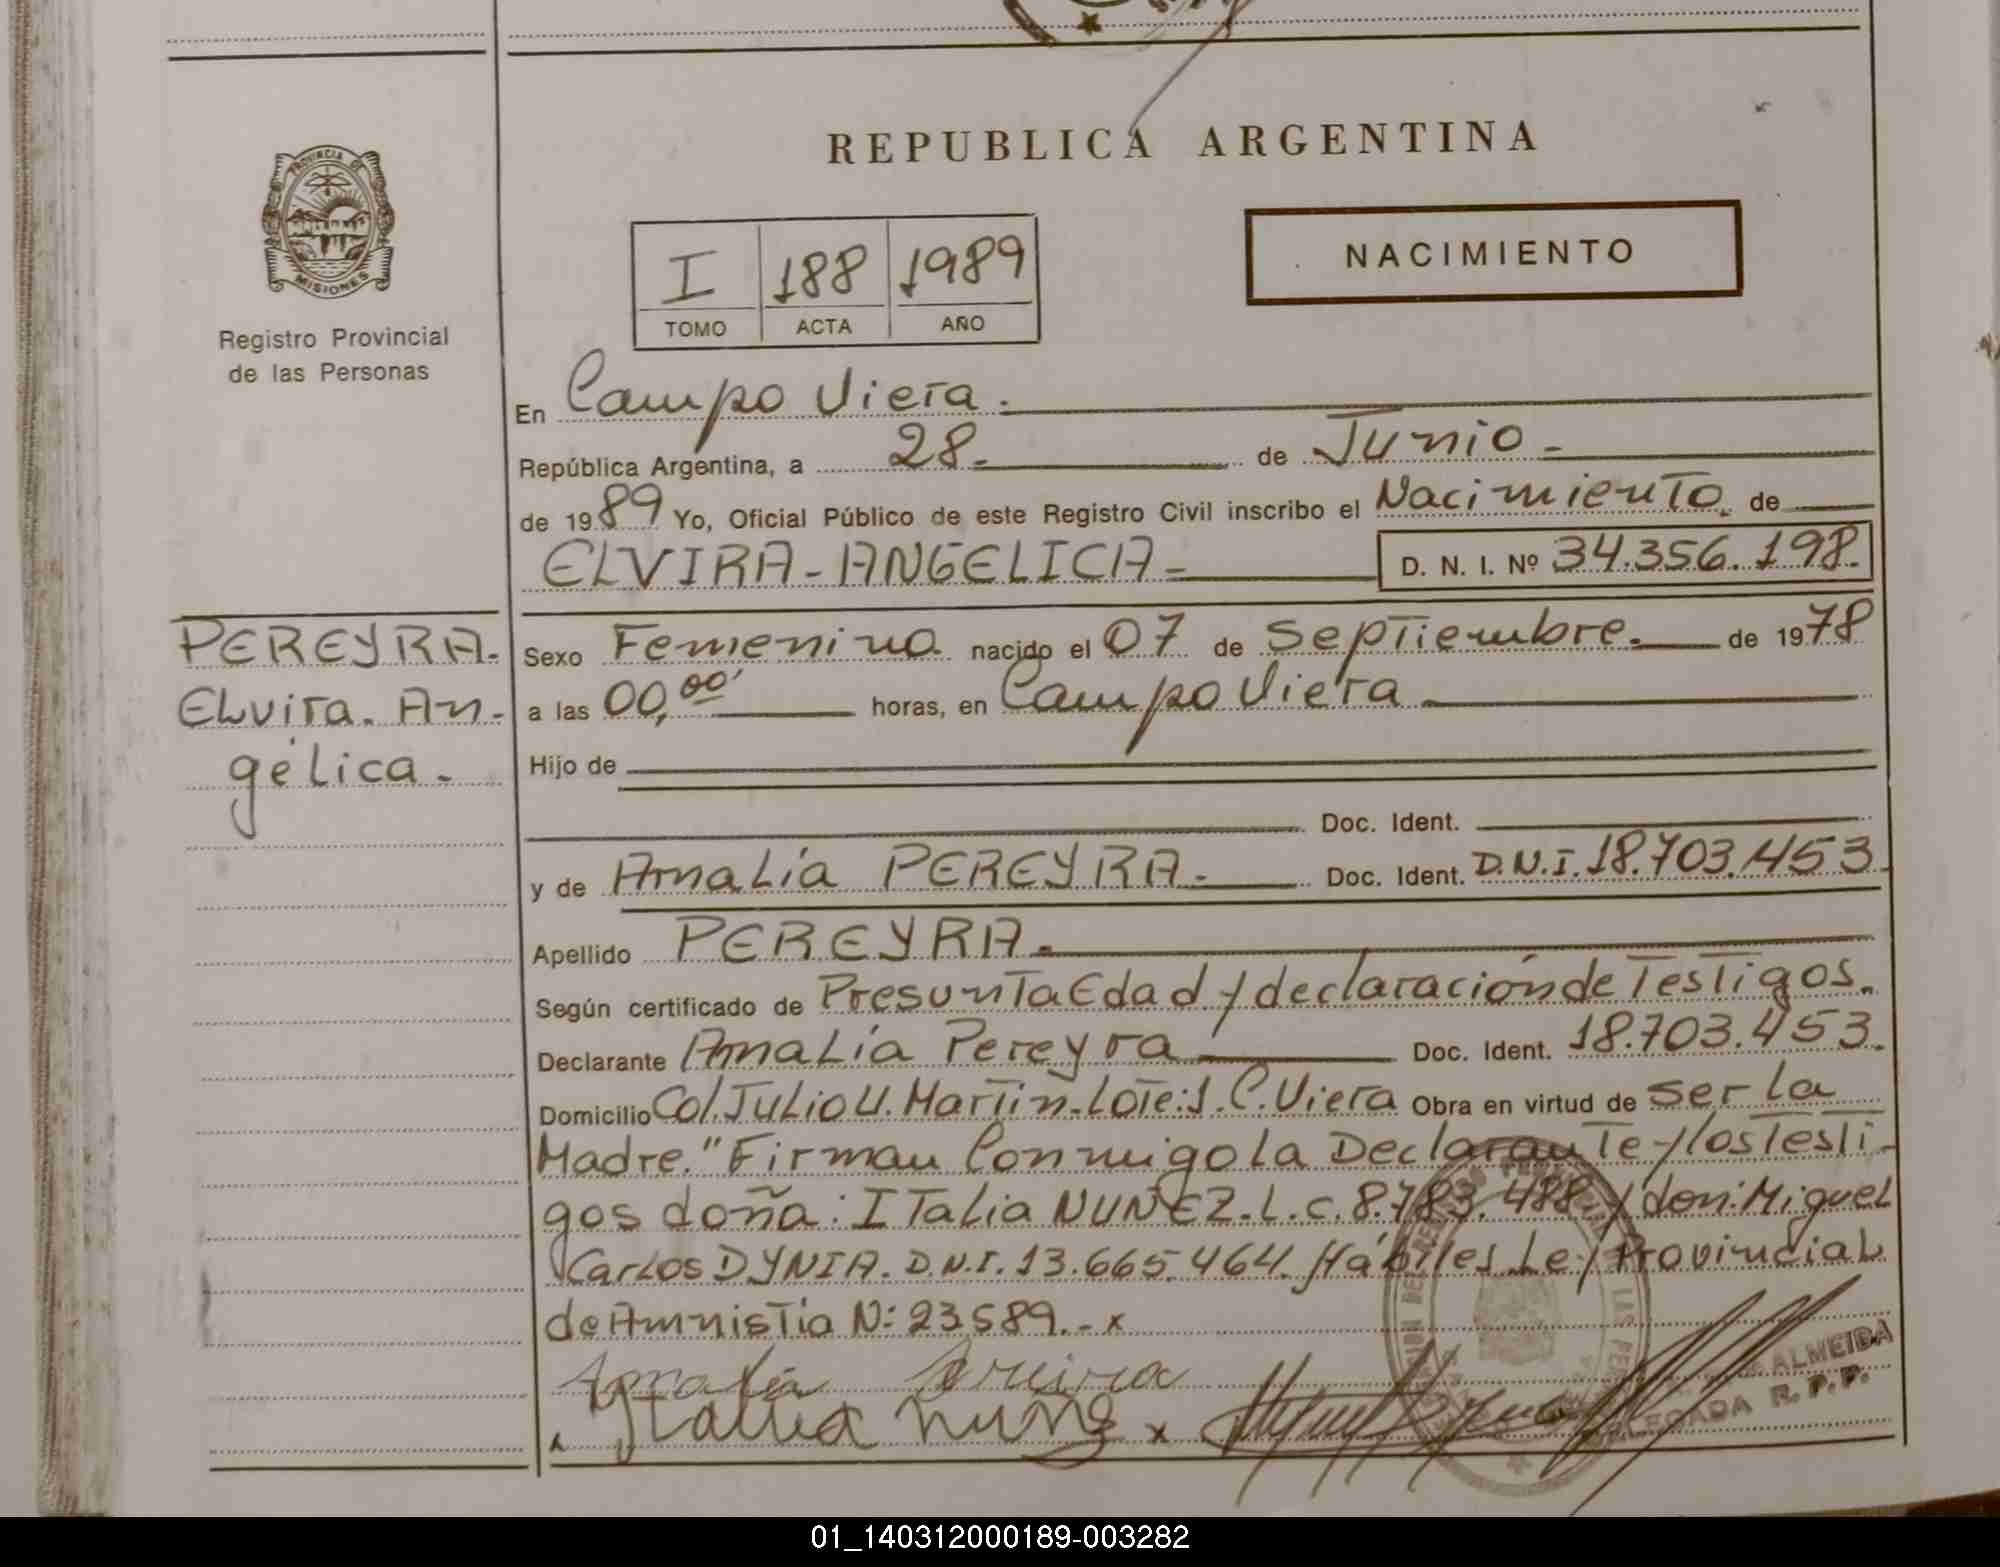 REPUBLICA ARGENTINA
PROVINCIA DE
MISIONES
Registro Provincial
de las Personas
NACIMIENTO
I 188 1989
TOMO ACTA AÑO
En Campo Viera.
República Argentina, a 28- de Junio-
de 1989 Yo, Oficial Público de este Registro Civil inscribo el Nacimiento. de
ELVIRA-ANGELICA- D. N. I. Nº 34.356.198.
PEREYRA.
Elvira. An-
gélica.
Sexo Femenino nacido el 07 de Septiembre. de 1978
a las 00,00' horas, en Campo Viera
Hijo de
Doc. Ident.
y de Amalia PEREYRA. Doc. Ident. D.N.I.18.703.453
Apellido PEREYRA.
Según certificado de Presunta Edad y declaración de Testigos.
Declarante Amalia Pereyra Doc. Ident. 18.703.453.
Domicilio Col.Julio U. Martin.Lote:1. C.Viera Obra en virtud de ser la
Madre." Firman Conmigo la Declarante y los Testi-
gos doña: ITalia NUÑEZ.L.C.8.783.488 y don:Miguel
Carlos DYNIA. D.N.I. 13.665.464. Hábiles Ley Provincial
de Amnistia N: 23589.-x
Amalia Pereira
Italia Nuñe x
ALMEIDA
DELEGADA R.P.P.
01_140312000189-003282